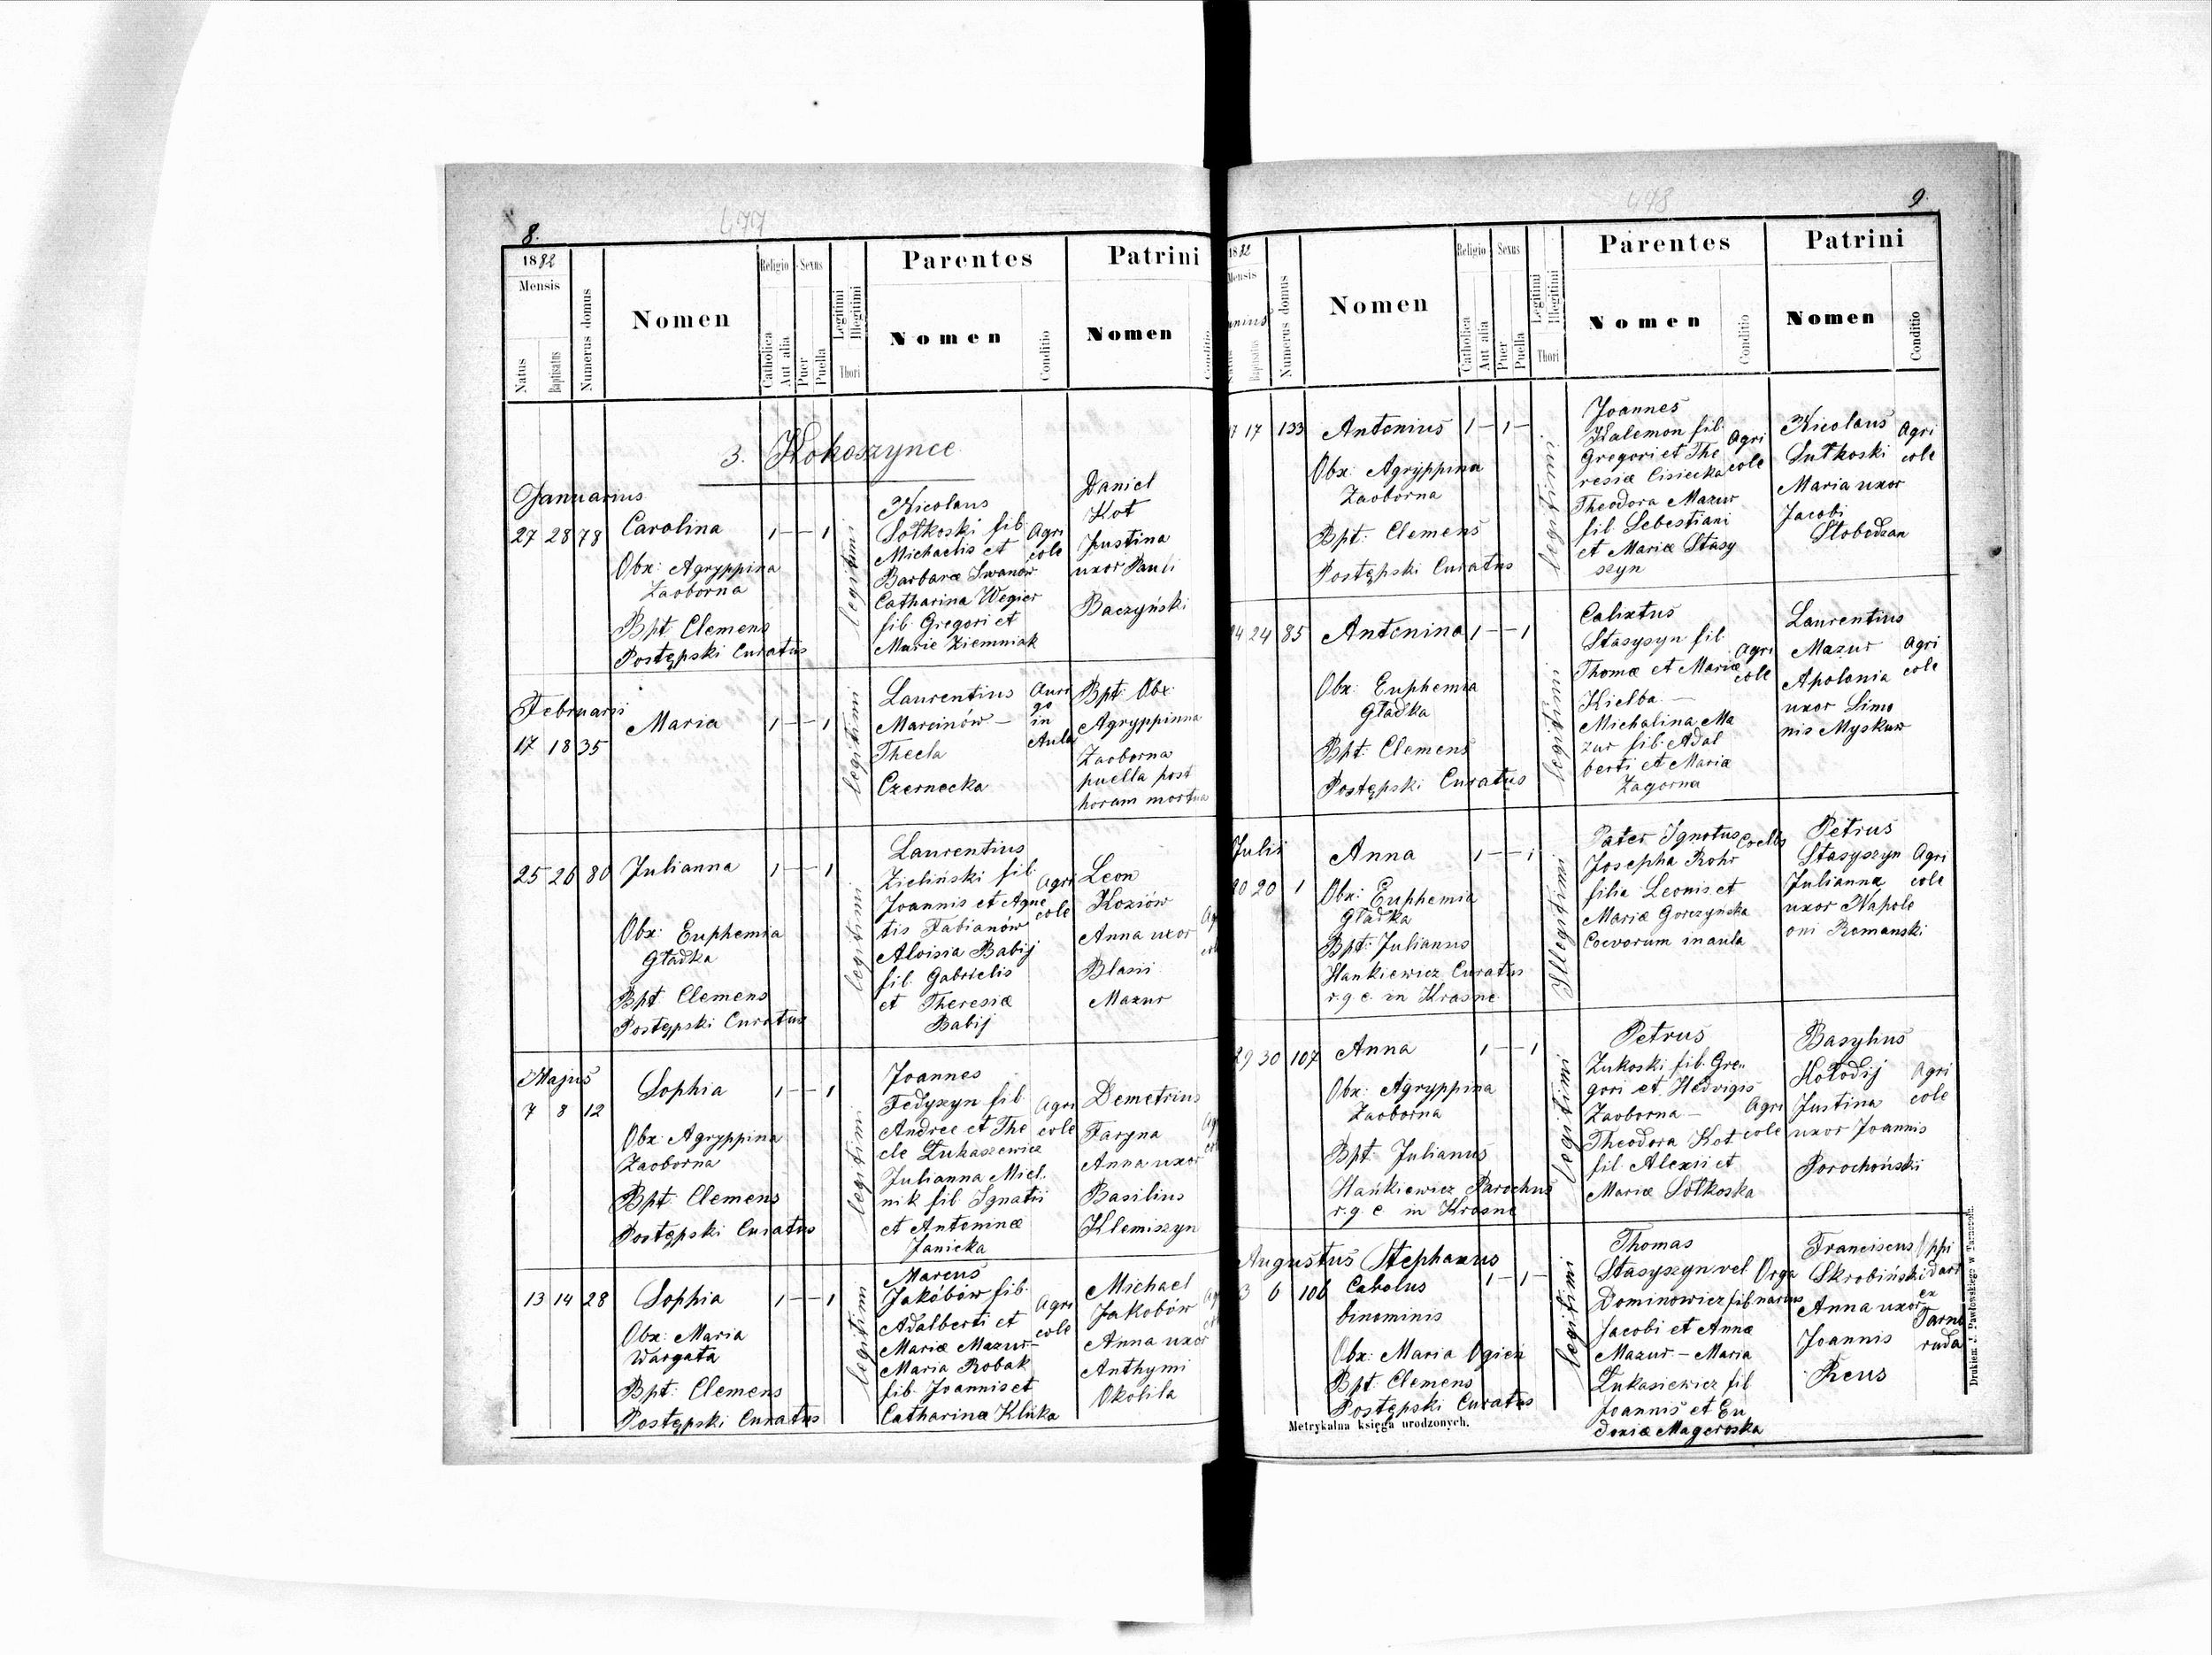 8.
477
1882
Mensis
Natus
Baptisatus
Numerus domus
Nomen
Religio
Catholica
Aut alia
Sexus
Puer
Puella
Legitimi
Illegitimi
Thori
Parentes
Nomen
Conditio
Patrini
Nomen
3. Kokoszynce
Januarius
27 28 78
Carolina
1 — — 1
Obx: Agryppina
Zaoborna
Bpt Clemens
Postępski Curatus
legitimi
Nicolaus
Sotkoski fil.
Michaelis et
Barbaræ Iwanów
Catharina Wegier
fil. Gregori et
Marie Ziemniak
Agri
cole
Daniel
Kot
Justina
uxor Pauli
Baczyński
Februarii
17 18 35
Maria
1 — — 1
legitimi
Laurentius
Marcinów —
Thecla
Czernecka
Auri
go
in
Aula
Bpt: Obx:
Agryppinna
Zaoborna
puella post
horam mortua
25 26 80
Julianna
1 — — 1
Obx: Euphemia
Gładka
Bpt Clemens
Postępski Curatus
legitimi
Laurentius
Zieliński fil.
Joannis et Agne
tis Fabianów
Aloisia Babij
fil. Gabrielis
et Theresiæ
Babij
Agri
cole
Leon
Koziów
Anna uxor
Blasii
Mazur
Majus
7 8 12
Sophia
1 — — 1
Obx: Agryppina
Zaoborna
Bpt Clemens
Postępski Curatus
legitimi
Joannes
Fedyszyn fil.
Andree et The
cle Łukaszewicz
Julianna Miel.
nik fil Ignatii
et Antoninæ
Janicka
Agri
cole
Demetrius
Faryna
Anna uxor
Basilius
Klemiszyn
13 14 28
Sophia
1 — — 1
Obx: Maria
Wargata
Bpt: Clemens
Postępski Curatus
legitimi
Marcus
Jakóbów fil.
Adalberti et
Mariæ Mazur—
Maria Robak
fil. Joannis et
Catharinæ Klúka
Agri
cole
Michael
Jakobów
Anna uxor
Anthymi
Okolila
478
9.
1882
Mensis
Baptisatus
Numerus domus
Nomen
Religio
Catholica
Aut alia
Sexus
Puer
Puella
Legitimi
Illegitimi
Thori
Parentes
Nomen
Conditio
Patrini
Nomen
Conditio
17 17 133
Antonius
1 — 1 —
Obx: Agryppina
Zaoborna
Bpt: Clemens
Postępski Curatus
legitimi
Joannes
Kalemon fil.
Gregori et The
resiæ Cisiecka
Theodora Mazur
fil. Sebestiani
et Mariæ Stasy
szyn
Agri
cole
Nicolaus
Sutkoski
Maria uxor
Jacobi
Slobodzan
Agri
cole
24 24 85
Antonina
1 — — 1
Obx: Euphemia
Gładka
Bpt: Clemens
Postępski Curatus
legitimi
Calixtus
Stasysyn fil
Thomæ et Mariæ
Kielba —
Michalina Ma
zur fil. Adal
berti et Mariæ
Zagorna
Agri
cole
Laurentius
Mazur
Apolonia
uxor Simo
nis Myskuw
Agri
cole
Julii
20 20 1
Anna
1 — — 1
Obx: Euphemia
Gładka
Bpt: Julianus
Hankiewicz Curatus
r.g.c. in Krasne
Illegitimi
Pater Ignotus
Josepha Rohr
filia Leonis et
Mariæ Gorczyńska
Coevorum in aula
Petrus
Stasyszyn
Julianna
uxor Napole
oni Romanski
Agri
cole
29 30 107
Anna
1 — — 1
Obx: Agryppina
Zaoborna
Bpt Julianus
Hańkiewicz Parochus
r.g.c in Krasne
legitimi
Petrus
Zukoski fil. Gre.
gori et Hedvigis
Zaoborna —
Theodora Kot
fil Alexii et
Mariæ Sotkoska
Agri
cole
Basylius
Kołodij
Justina
uxor Joannis
Porochoński
Agri
cole
Augustus
3 6 106
Stephanus
Carolus
binominis
1 — 1 —
Obx: Maria Ogień
Bpt: Clemens
Postępski Curatus
legitimi
Thomas
Stasyszyn vel
Dominowicz fil.
Jacobi et Annæ
Mazur — Maria
Łukasiewicz fil
Joannis et Eu
doxiæ Mageroska
Orga
narius
Franciscus
Skrobiński
Anna uxor
Joannis
Reus
Oppi
dari
ex
Tarno
ruda
Metrykalna księga urodzonych.
Drukiem J. Pawłowskiego w Tarnopolu.